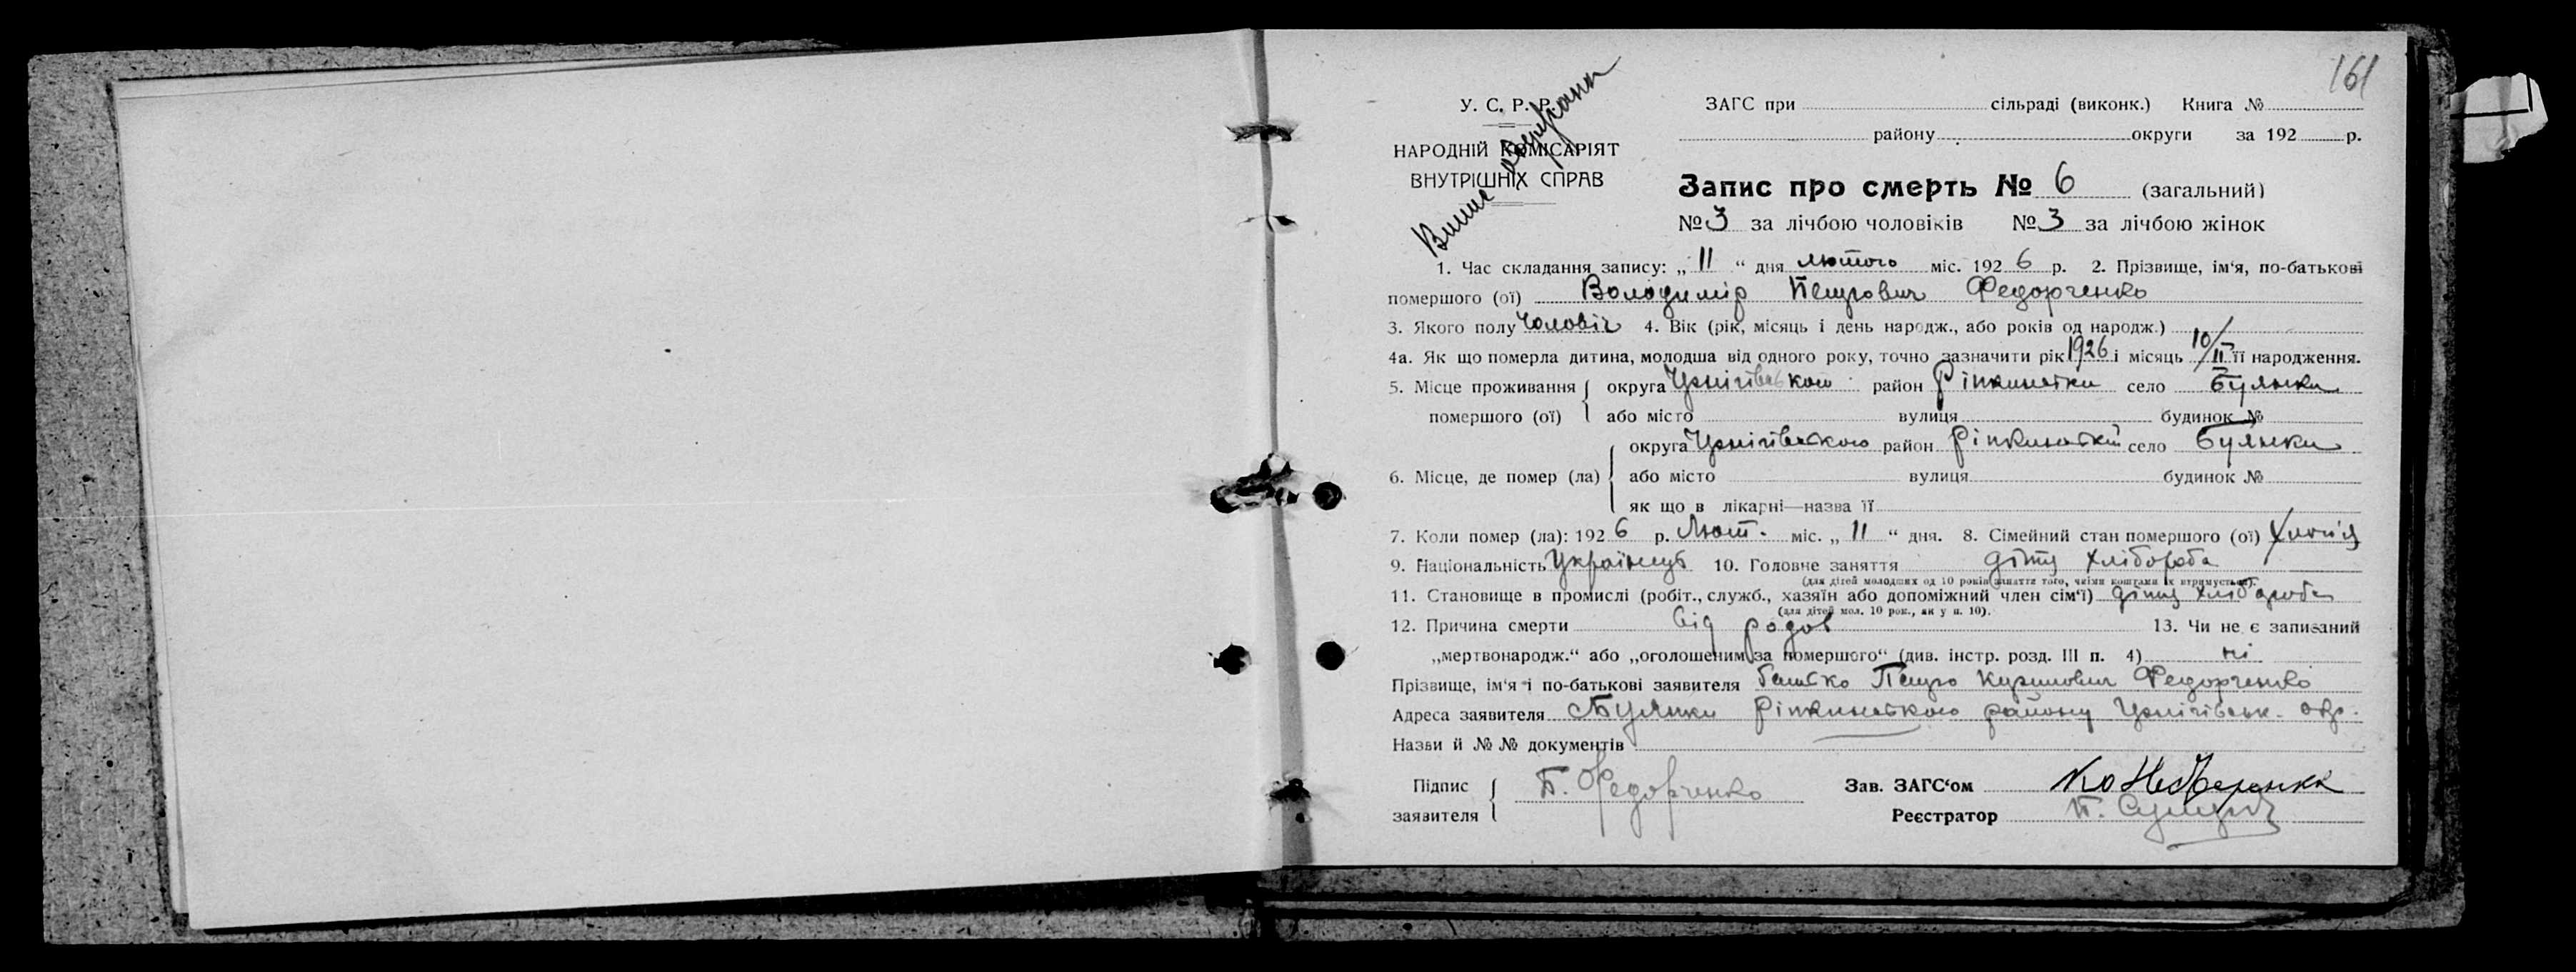 161
У. С. Р. Р.
НАРОДНІЙ КОМІСАРІЯТ
ВНУТРІШНІХ СПРАВ
Випис одержаний
ЗАГС при сільраді (виконк.) Книга №
району округи за 192 р.
Запис про смерть № 6 (загальний)
№ 3 за лічбою чоловіків № 3 за лічбою жінок
1. Час складання запису: „ 11 “ дня лютого міс. 192 6 р. 2. Прізвище, ім‘я, по-батькові
помершого (ої) Володимір Петрович Федорченко
3. Якого полу чоловіч 4. Вік (рік, місяць і день народж., або років од народж.)
4а. Як що померла дитина, молодша від одного року, точно зазначити рік 1926 і місяць 10/II її народження.
5. Місце проживання помершого (ої) округа Чернігівського район Ріпкинськи село Буянки
або місто вулиця будинок №
6. Місце, де помер (ла) округа Чернігівського район Ріпкинській село Буянки
або місто вулиця будинок №
як що в лікарні—назва її
7. Коли помер (ла): 192 6 р. Лют. міс. „ 11 “ дня. 8. Сімейний стан помершого (ої)
9. Національність Українець 10. Головне заняття дітя хлібороба
(для дітей молодших од 10 років заняття того, чиїми коштами їх втримується).
11. Становище в промислі (робіт., служб., хазяїн або допоміжний член сім‘ї) дітя хлібороба
(для дітей мол. 10 рок., як у п. 10).
12. Причина смерти від родов 13. Чи не є записаний
„мертвонародж.“ або „оголошеним за помершого“ (див. інстр. розд. III п. 4) ні
Прізвище, ім‘я і по-батькові заявителя батько Петро Федорченко
Адреса заявителя с Буянки Ріпкинського району Чернігівськ. окр.
Назви й № № документів
Підпис заявителя П. Федорченко
Зав. ЗАГС‘ом
Реєстратор